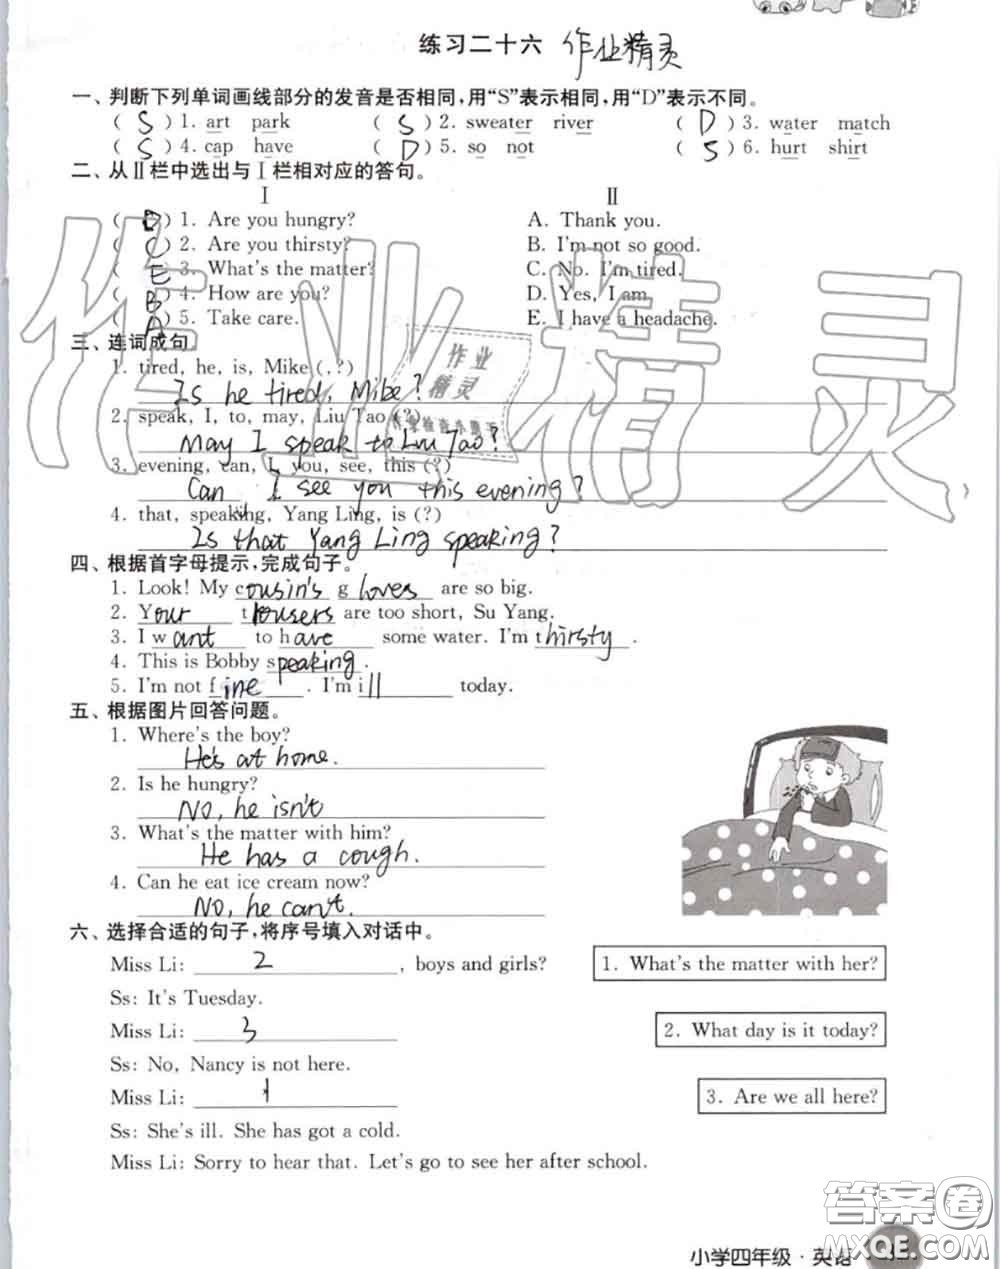 练习二十六 作业精灵
一、判断下列单词画线部分的发音是否相同,用“S”表示相同,用“D”表示不同。
( S ) 1. art park ( S ) 2. sweater river ( D ) 3. water match
( S ) 4. cap have ( D ) 5. so not ( S ) 6. hurt shirt
二、从Ⅱ栏中选出与Ⅰ栏相对应的答句。
Ⅰ Ⅱ
( D ) 1. Are you hungry? A. Thank you.
( C ) 2. Are you thirsty? B. I'm not so good.
( E ) 3. What's the matter? C. No. I'm tired.
( B ) 4. How are you? D. Yes, I am.
( A ) 5. Take care. E. I have a headache.
三、连词成句。
1. tired, he, is, Mike (,?)
Is he tired, Mike?
2. speak, I, to, may, Liu Tao (?)
May I speak to Liu Tao?
3. evening, can, I, you, see, this (?)
Can I see you this evening?
4. that, speaking, Yang Ling, is (?)
Is that Yang Ling speaking?
四、根据首字母提示,完成句子。
1. Look! My cousin's gloves are so big.
2. Your trousers are too short, Su Yang.
3. I want to have some water. I'm thirsty.
4. This is Bobby speaking.
5. I'm not fine. I'm ill today.
五、根据图片回答问题。
1. Where's the boy?
He's at home.
2. Is he hungry?
No, he isn't
3. What's the matter with him?
He has a cough.
4. Can he eat ice cream now?
No, he can't.
六、选择合适的句子,将序号填入对话中。
Miss Li: 2, boys and girls? 1. What's the matter with her?
Ss: It's Tuesday.
Miss Li: 3 2. What day is it today?
Ss: No, Nancy is not here.
Miss Li: 1 3. Are we all here?
Ss: She's ill. She has got a cold.
Miss Li: Sorry to hear that. Let's go to see her after school.
小学四年级·英语
作业精灵
作业
精灵
答案圈
MXQE.COM